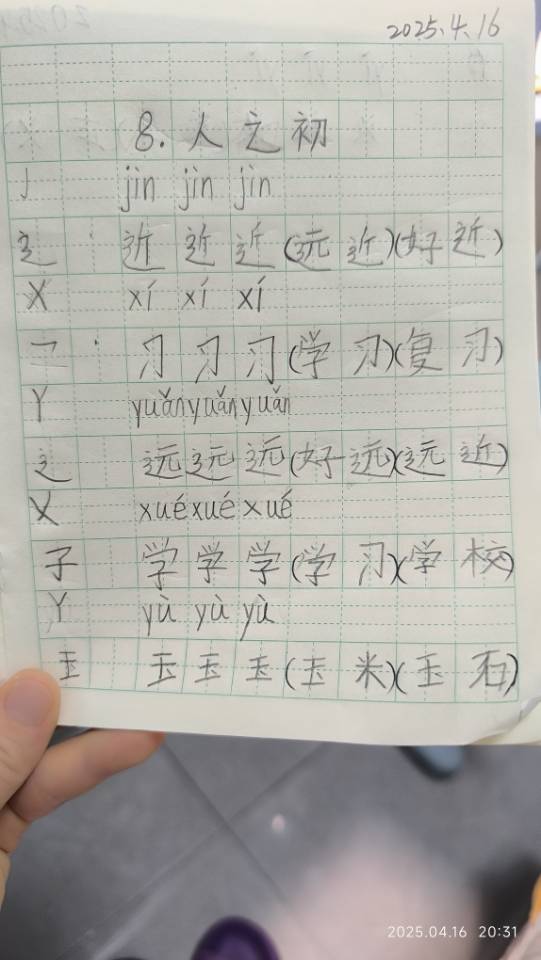 2025.4.16
8. 人之初
J jìn jìn jìn
辶 近 近 近 (远近)(好近)
X xí xí xí
乛 习 习 习 (学习)(复习)
Y yuǎn yuǎn yuǎn
辶 远 远 远 (好远)(远近)
X xué xué xué
子 学 学 学 (学习)(学校)
Y yù yù yù
玉 玉 玉 玉 (玉米)(玉石)
2025.04.16 20:31